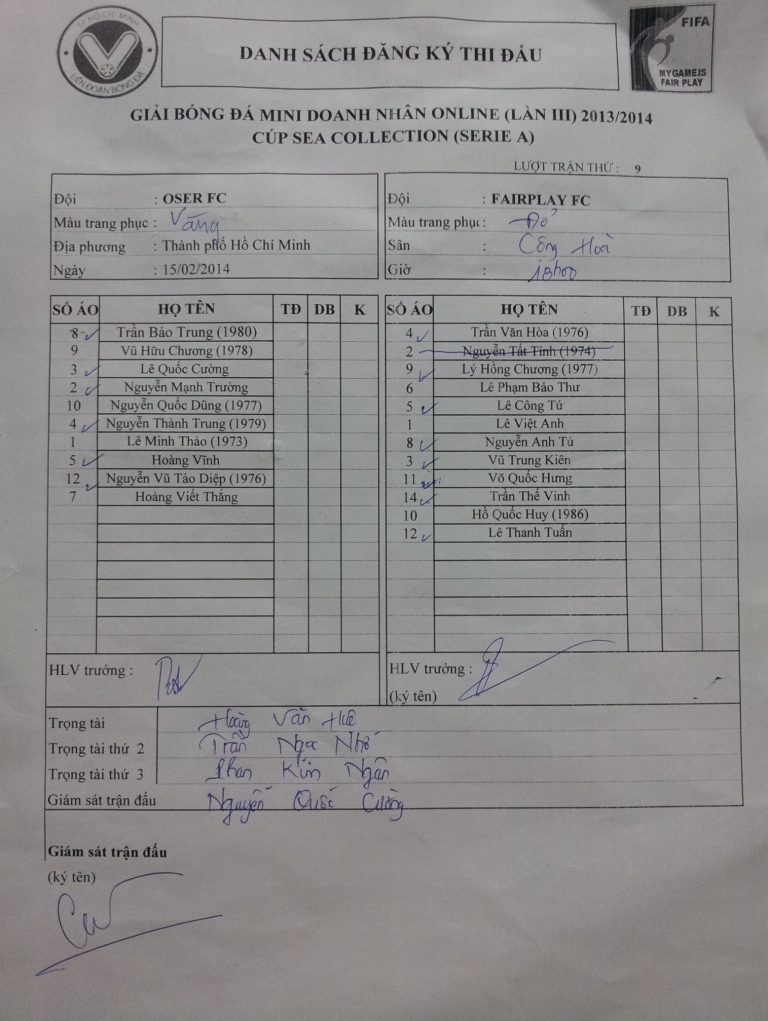 TP HỒ CHÍ MINH
LIÊN ĐOÀN BÓNG ĐÁ
DANH SÁCH ĐĂNG KÝ THI ĐẤU
FIFA
MY GAME IS
FAIR PLAY
GIẢI BÓNG ĐÁ MINI DOANH NHÂN ONLINE (LẦN III) 2013/2014
CÚP SEA COLLECTION (SERIE A)
LƯỢT TRẬN THỨ : 9
Đội : OSER FC
Màu trang phục : Vàng
Địa phương : Thành phố Hồ Chí Minh
Ngày : 15/02/2014
Đội : FAIRPLAY FC
Màu trang phục : Đỏ
Sân : Cộng Hoà
Giờ : 18h00
SỐ ÁO HỌ TÊN TĐ DB K
8 Trần Bảo Trung (1980)
9 Vũ Hữu Chương (1978)
3 Lê Quốc Cường
2 Nguyễn Mạnh Trường
10 Nguyễn Quốc Dũng (1977)
4 Nguyễn Thành Trung (1979)
1 Lê Minh Thảo (1973)
5 Hoàng Vĩnh
12 Nguyễn Vũ Tảo Diệp (1976)
7 Hoàng Viết Thắng
HLV trưởng :
SỐ ÁO HỌ TÊN TĐ DB K
4 Trần Văn Hòa (1976)
2 Nguyễn Tất Tính (1974)
9 Lý Hồng Chương (1977)
6 Lê Phạm Bảo Thư
5 Lê Công Tú
1 Lê Việt Anh
8 Nguyễn Anh Tú
3 Vũ Trung Kiên
11 Võ Quốc Hưng
14 Trần Thế Vinh
10 Hồ Quốc Huy (1986)
12 Lê Thanh Tuấn
HLV trưởng :
(ký tên)
Trọng tài Hoàng Văn Huê
Trọng tài thứ 2 Trần Ngọc Nhớ
Trọng tài thứ 3 Phan Kim Ngân
Giám sát trận đấu Nguyễn Quốc Cường
Giám sát trận đấu
(ký tên)